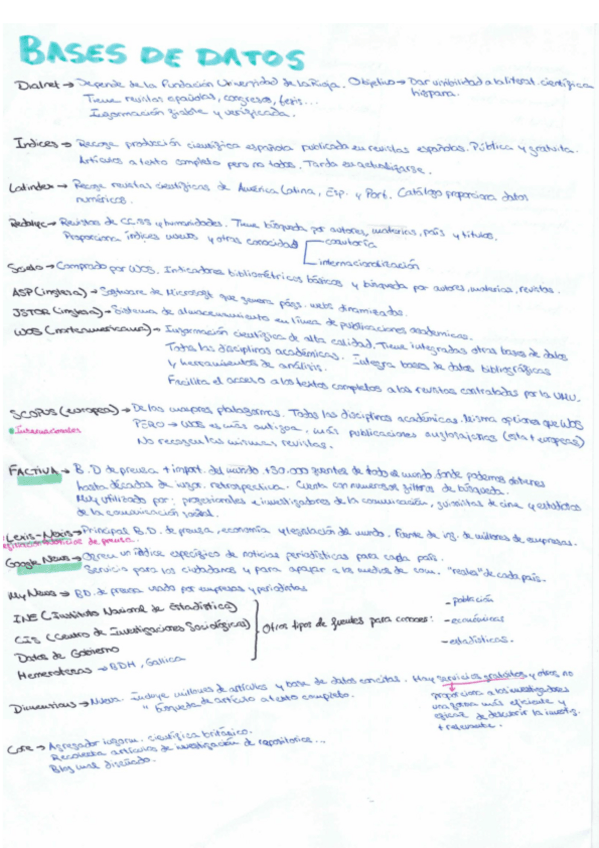 BASES DE DATOS
Dialnet → Depende de la Fundación Universidad de la Rioja. Objetivo → Dar visibilidad a la literat. científica
hispana.
Tiene revistas españolas, congresos, tesis...
Información fiable y verificada.
Índices → Recoge producción científica española publicada en revistas españolas. Pública y gratuita.
Artículos a texto completo pero no todos. Tarda en actualizarse.
Latindex → Recoge revistas científicas de América Latina, Esp. y Port. Catálogo proporciona datos
numéricos.
Redalyc → Revistas de CC.SS y humanidades. Tiene búsqueda por autores, materias, país y títulos.
Proporciona índices y otros coautoría
internacionalización
Scielo → Comprado por WOS. Indicadores bibliométricos básicos y búsqueda por autores, materias, revistas.
ASP (inglesa) → Software de Microsoft que genera págs. webs dinamizadas.
JSTOR (inglesa) → Sistema de almacenamiento en línea de publicaciones académicas.
WOS (norteamericana) → Información científica de alta calidad. Tiene integradas otras bases de datos
Todas las disciplinas académicas. Integra bases de datos bibliográficas
y herramientas de análisis.
Facilita el acceso a los textos completos a las revistas contratadas por la
SCOPUS (europea) → De las mayores plataformas. Todas las disciplinas académicas. Misma opciones que WOS
Internacionales
PERO → WOS es más antigua, más publicaciones anglosajonas (esta + europeas)
No recogen las mismas revistas.
FACTIVA → B.D de prensa + import. del mundo +30.000 fuentes de todo el mundo donde podemos obtener
hasta décadas de infor. retrospectiva. Cuenta con numerosos filtros de búsqueda.
Muy utilizado por: profesionales e investigadores de la comunicación, juristas de cine y estadistas
de la comunicación social.
Lexis-Nexis → Principal B.D. de prensa, economía y legislación del mundo. Fuente de ing. de millones de empresas.
de prensa.
Google News → Ofrece un índice específico de noticias periodísticas para cada país.
Servicio para los ciudadanos y para apoyar a los medios de com. "reales" de cada país.
MyNews → BD. de prensa usado por empresas y periodistas
INE (Instituto Nacional de Estadística)
CIS (Centro de Investigaciones Sociológicas)
Datos de Gobierno
Hemerotecas → BDH, Gallica
Otros tipos de fuentes para conocer:
- población
- económicas
- estadísticas.
Dimensions → Nueva. Incluye millones de artículos y base de datos concitas. Hay servicios gratuitos y otros no
" búsqueda de artículo a texto completo.
proporciona a los investigadores
una forma más eficiente y
eficaz de descubrir la investig.
+ relevante.
Core → Agregador inform. científica británico.
Recolecta artículos de investigación de repositorios...
Blog mal diseñado.